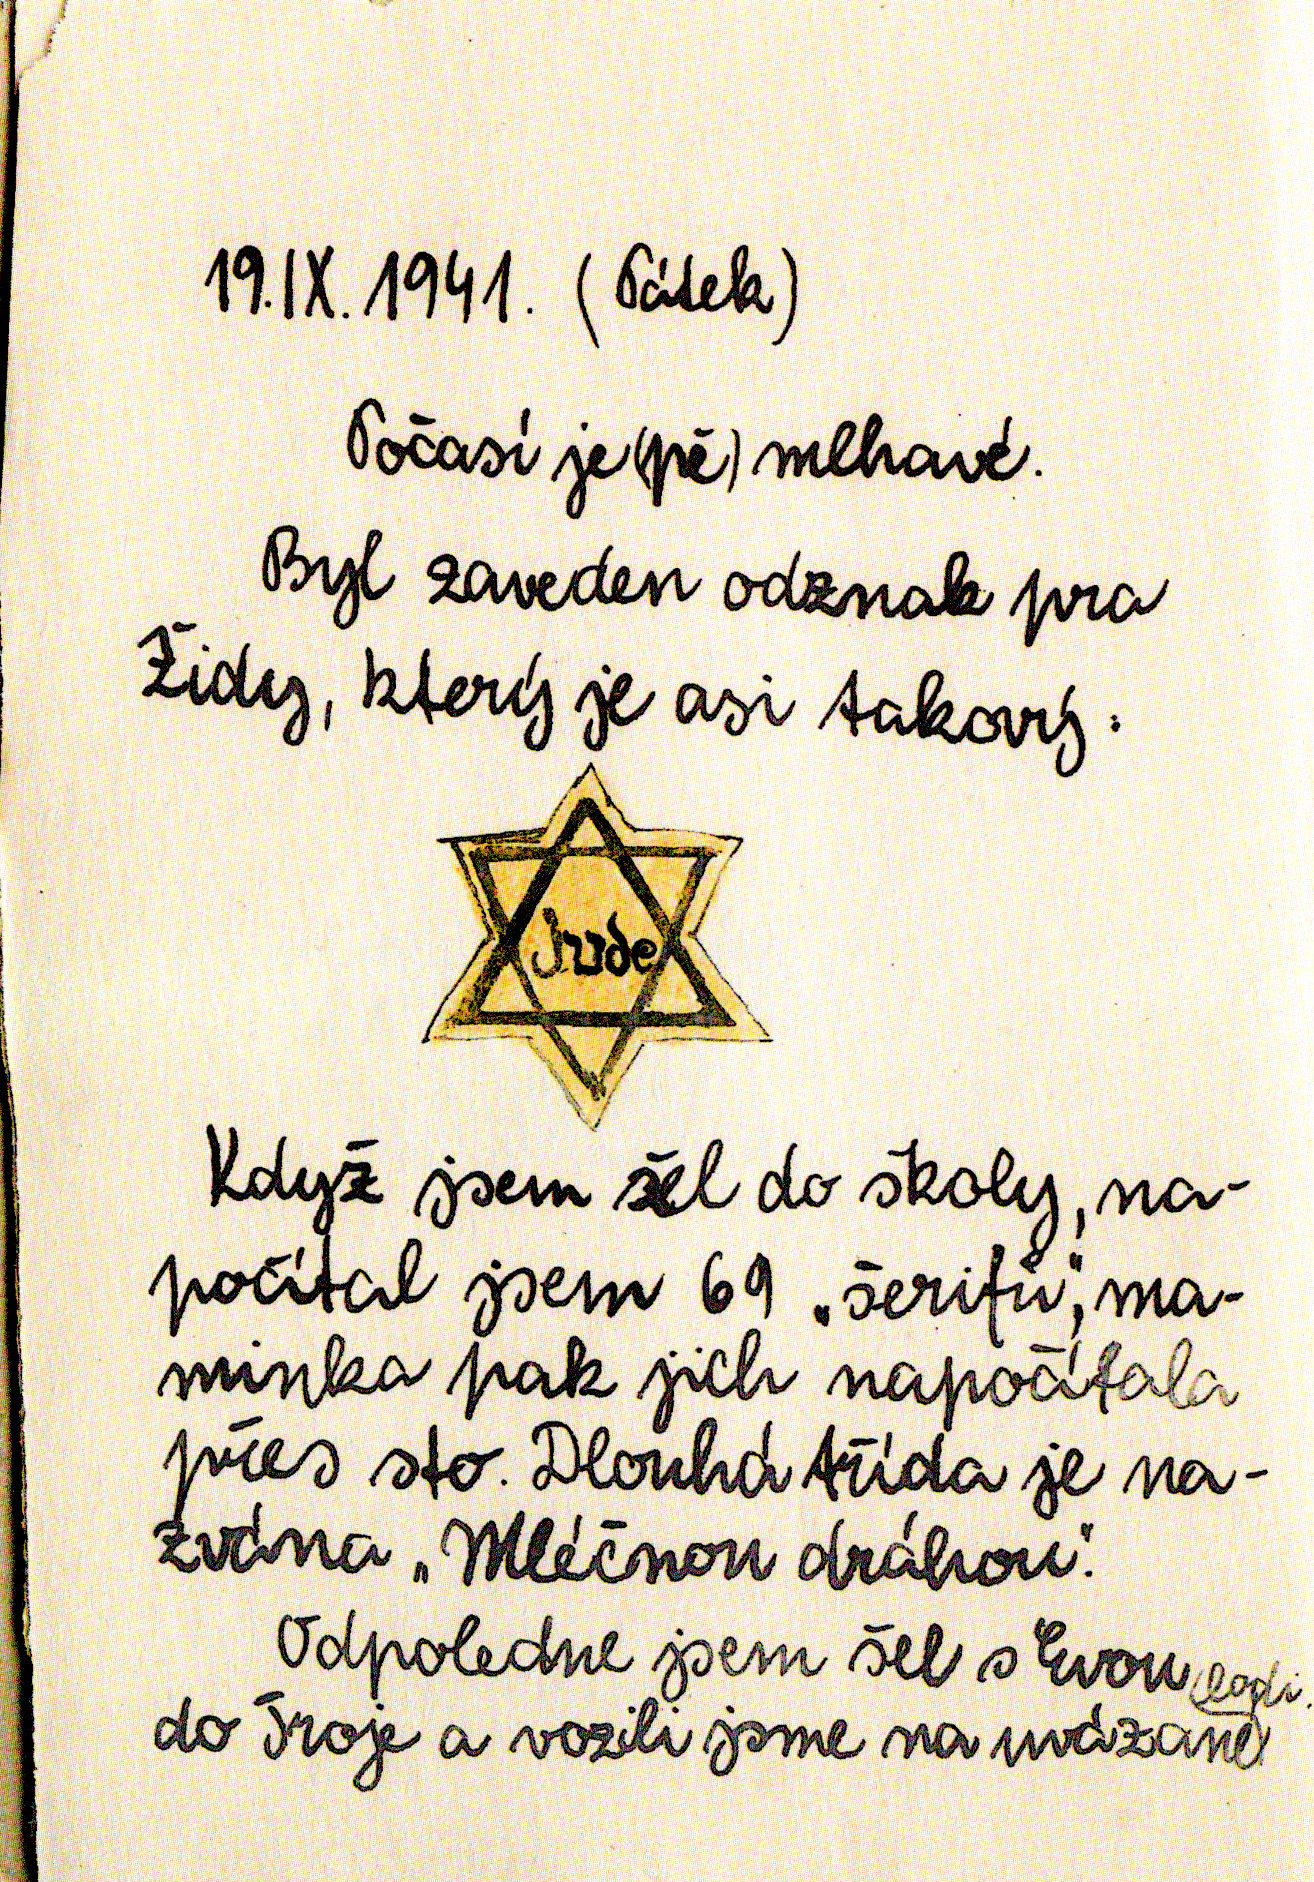 19.IX.1941. (Pátek)
Počasí je (pě) mlhavé.
Byl zaveden odznak pra
Židy, který je asi takový:
Jude
Když jsem šel do školy, na-
počítal jsem 69 „šerifů“, ma-
minka pak jich napočítala
přes sto. Dlouhá třída je na-
zvána „Mléčnou dráhou“.
Odpoledne jsem šel s Evou
lodi.
do Troje a vozili jsme na uvázané